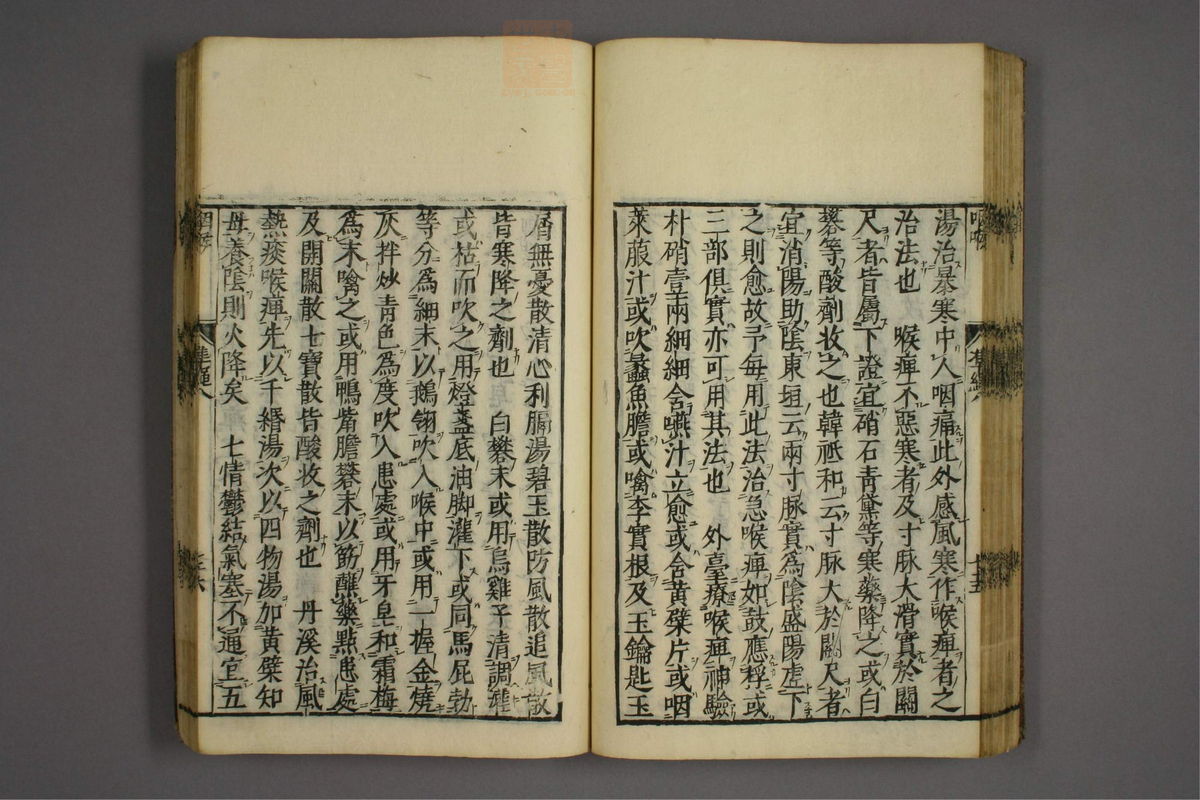 湯治暴寒中人咽痛此外感風寒作喉痺者之
治法也　喉痺不惡寒者及寸脉大滑實於關
尺者皆屬下證宜硝石靑黛等寒藥降之或白
礬等酸劑收之也韓祗和云寸脉大於關尺者
宜消陽助陰東垣云兩寸脉實爲陰盛陽虛下
之則愈故予每用此法治急喉痺如鼓應桴或
三部俱實亦可用其法也　外臺療喉痺神驗
朴硝壹兩細細含嚥汁立愈或含黃檗片或咽
萊菔汁或吹蠡魚膽或噙李實根及玉鑰匙玉
屑無憂散清心利膈湯碧玉散防風散追風散
皆寒降之劑也　白礬末或用烏雞子清調灌
或枯而吹之用燈盞底油脚灌下或同馬屁勃
等分爲細末以鵝翎吹入喉中或用一握金燒
灰拌炒靑色爲度吹入患處或用牙皂和霜梅
爲末噙之或用鴨觜膽礬末以筯蘸藥點患處
及開關散七寶散皆酸收之劑也　丹溪治風
熱痰喉痺先以千緡湯次以四物湯加黃檗知
母養陰則火降矣　七情鬱結氣塞不通宜五